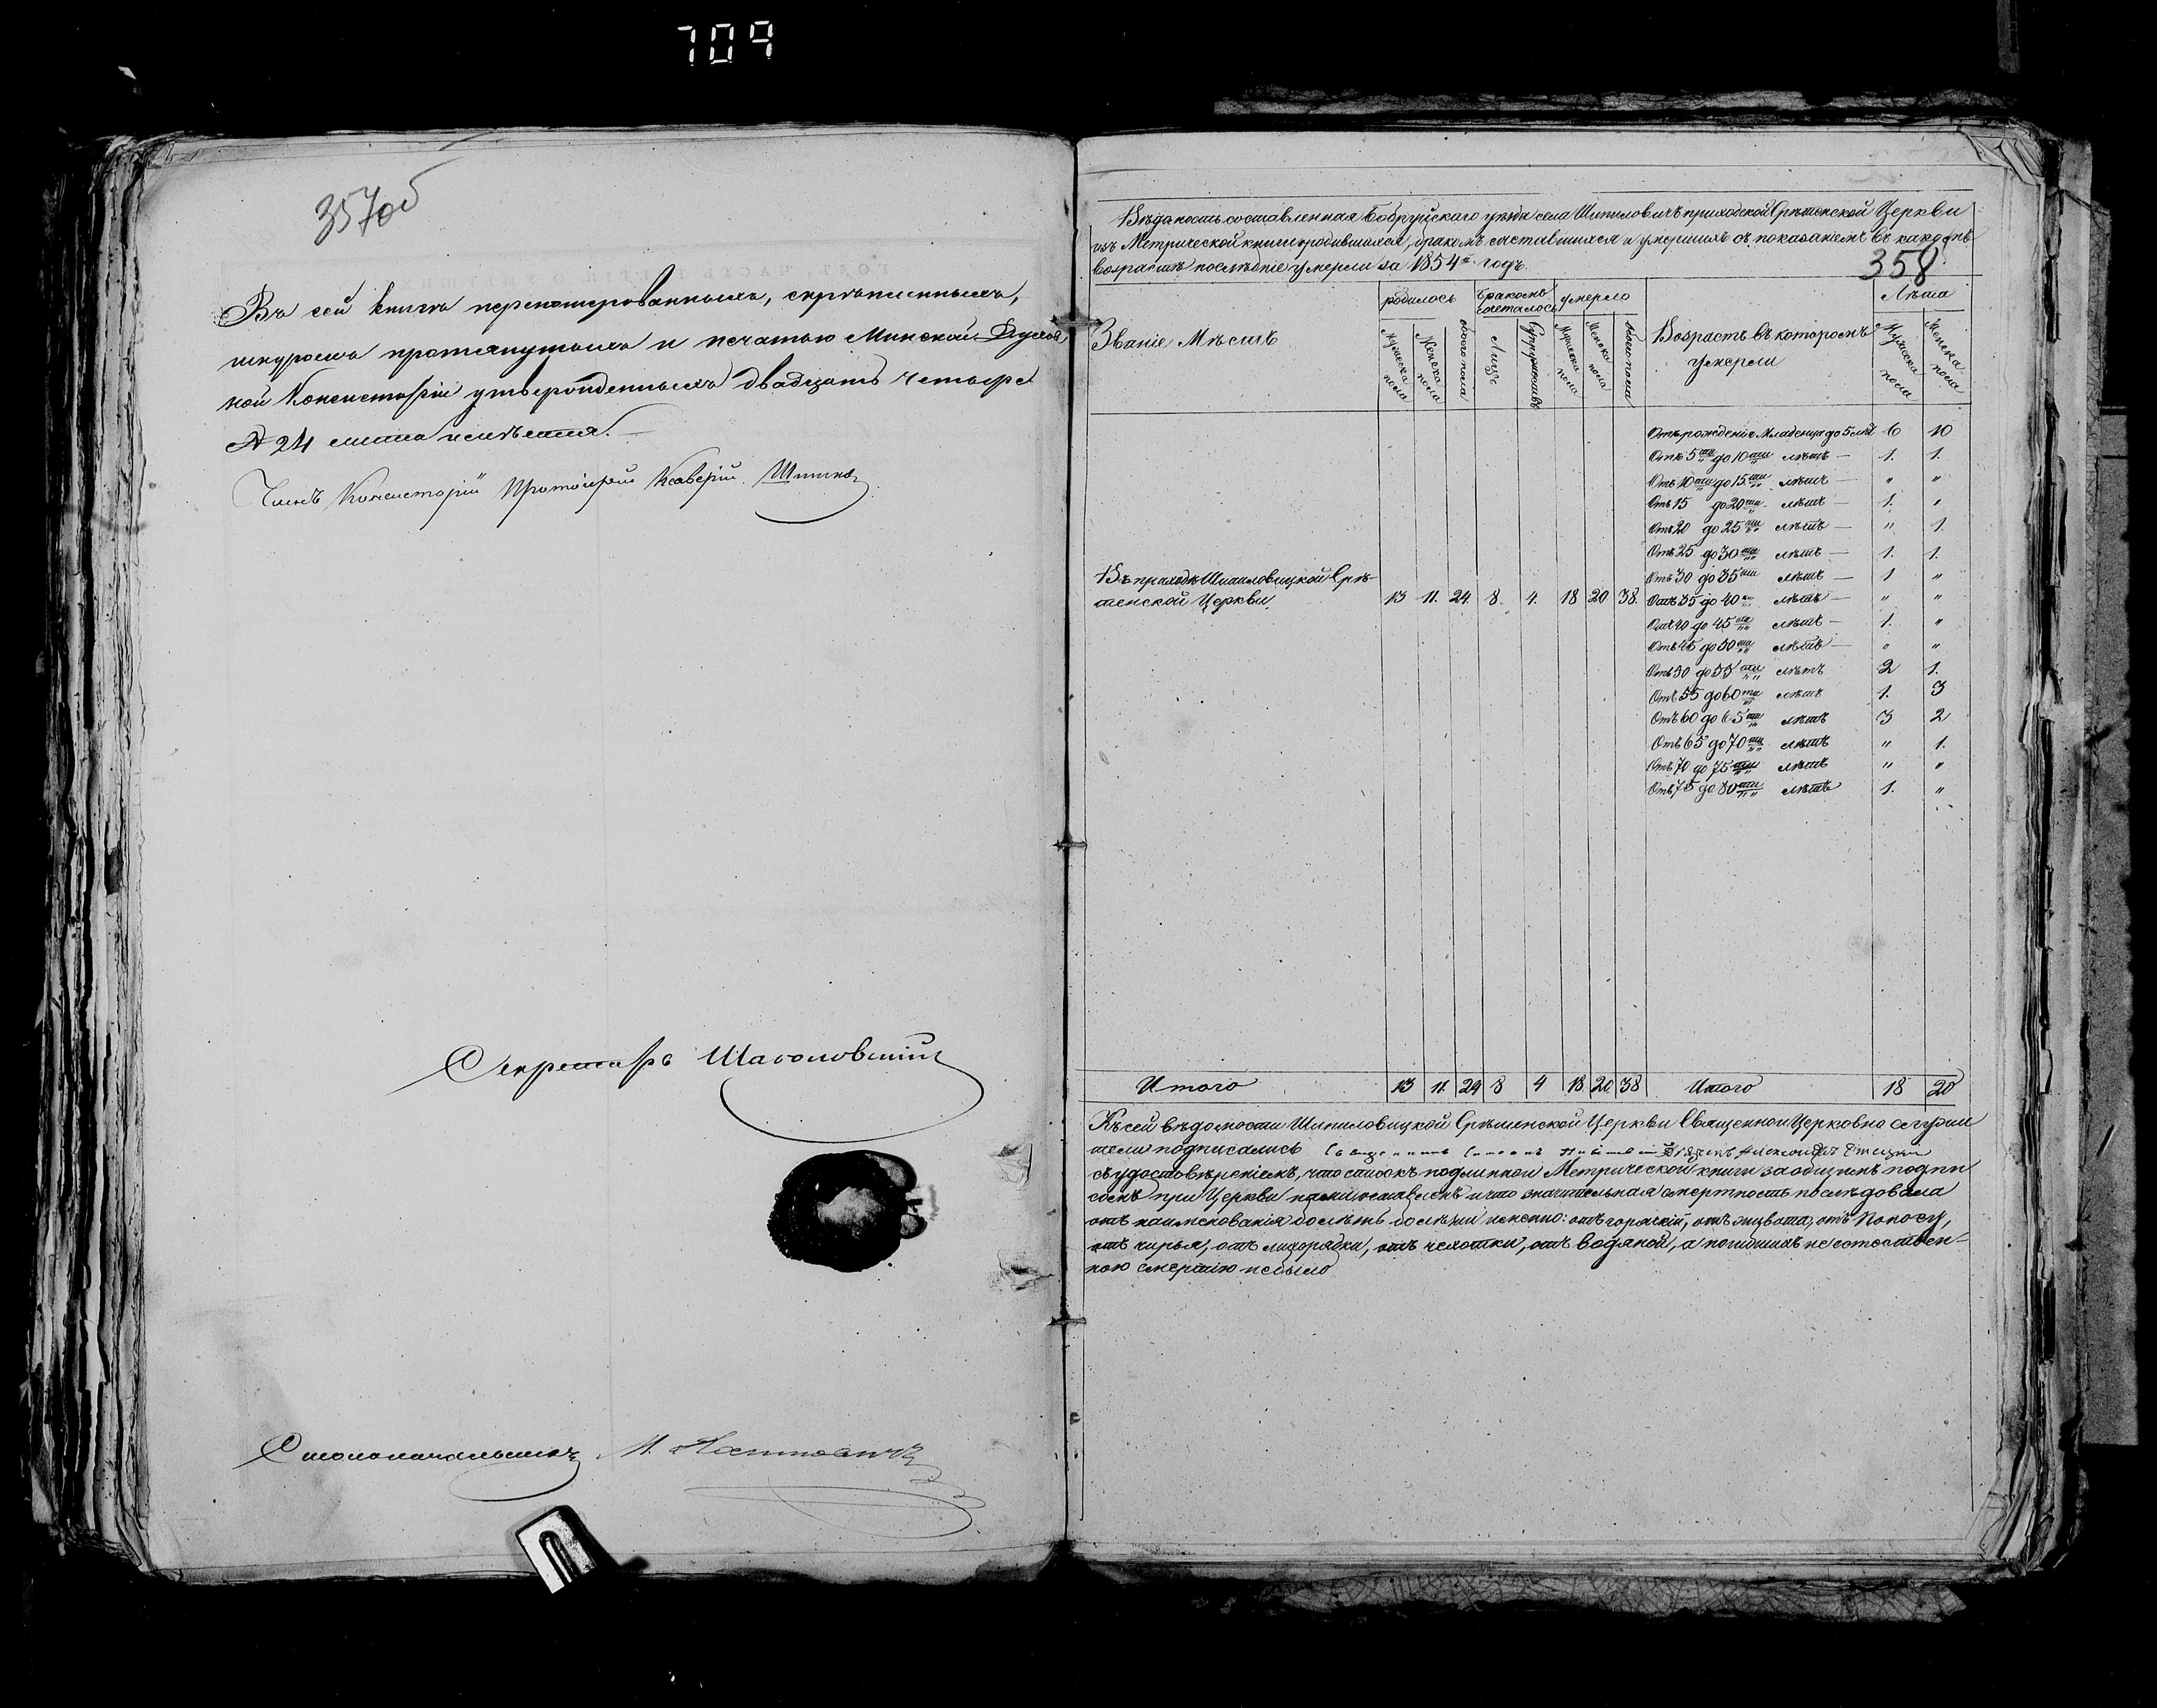 709
357об
Въ сей книгѣ перенумерованныхъ, скрѣпленныхъ,
шнуромъ протянутыхъ и печатью Минской Духов
ной Консисторіи утвержденныхъ двадцать четыре
№ 24 листа имѣется.
Членъ Консисторіи Протоіерей Ксаверій
Секретарь
Столоначальникъ М.
Вѣдомость составленная Бобруйскаго уѣзда села Шипиловичъ приходской Срѣтенской Церкви
изъ Метрической книги о родившихся, бракомъ сочетавшихся и умершихъ съ показаніемъ въ какомъ
возрастѣ послѣдніе умерли за 1854й годъ.
358
Званіе Мѣстъ
родилось
бракомъ сочеталось
умерло
Возрастъ въ которомъ умерли
Лѣта
Мужеска пола
Женска пола
обоего пола
Лицъ
Супружествъ
Мужеска пола
Женска пола
обоего пола
Мужеска пола
Женска пола
Отъ рожденія Младенца до 5 лѣтъ 6 10
Отъ 5ти до 10ти лѣтъ — 1. 1.
Отъ 10ти до 15ти лѣтъ — " "
Отъ 15 до 20ти лѣтъ — 1. "
Отъ 20 до 25ти лѣтъ — " 1.
Отъ 25 до 30ти лѣтъ — 1. 1.
Отъ 30 до 35ти лѣтъ — 1 "
Въ приходѣ Шипиловицкой Срѣ-
тенской Церкви 13 11. 24. 8. 4. 18 20 38. Отъ 35 до 40ти лѣтъ — " "
Отъ 40 до 45ти лѣтъ — 1. "
Отъ 45 до 50ти лѣтъ — " "
Отъ 50 до 55ти лѣтъ 2 1.
Отъ 55 до 60ти лѣтъ 1. 3
Отъ 60 до 65ти лѣтъ 3 2
Отъ 65 до 70ти лѣтъ " 1.
Отъ 70 до 75ти лѣтъ " "
Отъ 75 до 80ти лѣтъ 1. "
Итого 13 11. 24 8 4 18 20 38 Итого 18 20
Къ сей вѣдомости Шипиловицкой Срѣтенской Церкви Священноцерковнослужи
тели подписались Священникъ Александръ
съ удостовѣреніемъ, что списокъ подлинной Метрической книги за общимъ подпи
сомъ при Церкви и что значительная смертность послѣдовала
отъ наименованія болѣзни именно: отъ горячкій, отъ живота, отъ поносу,
отъ чирья, отъ лихорадки, отъ чехотки, отъ водяной, а погибшихъ неестествен-
ною смертію небыло